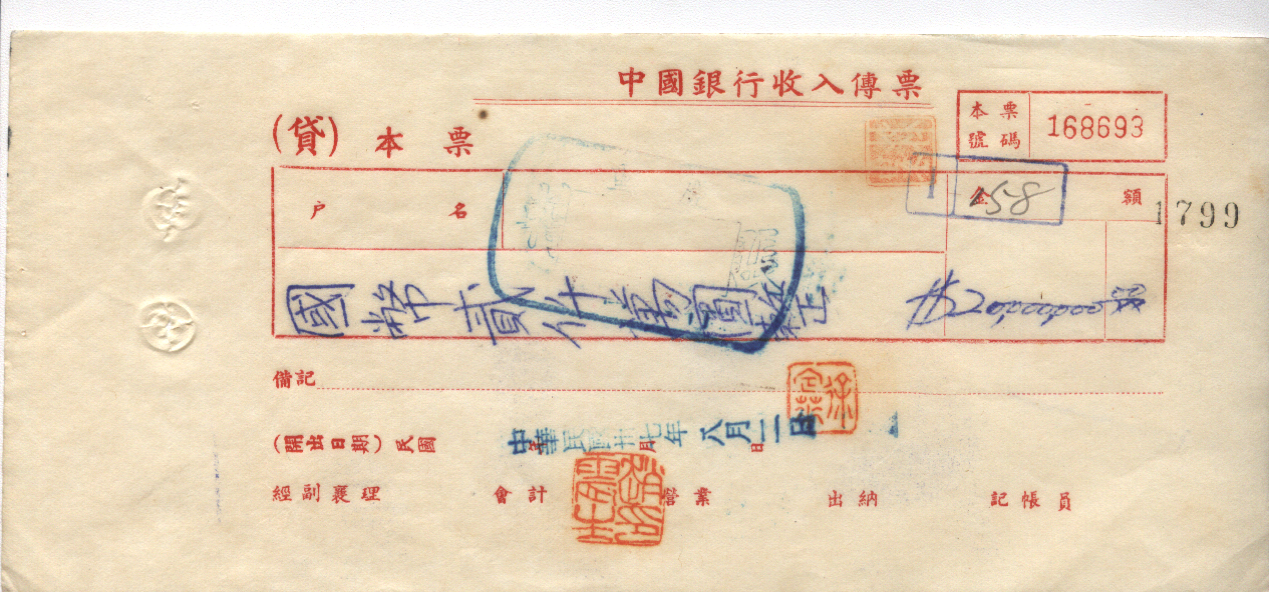 中國銀行收入傳票
(貸) 本票
本票號碼 168693
戶名
金額
158
1799
國幣貳仟萬圓整
$20000000
備記
(開出日期) 民國 年 月 日
中華民國卅七年八月二日
經副襄理 會計 營業 出納 記帳員